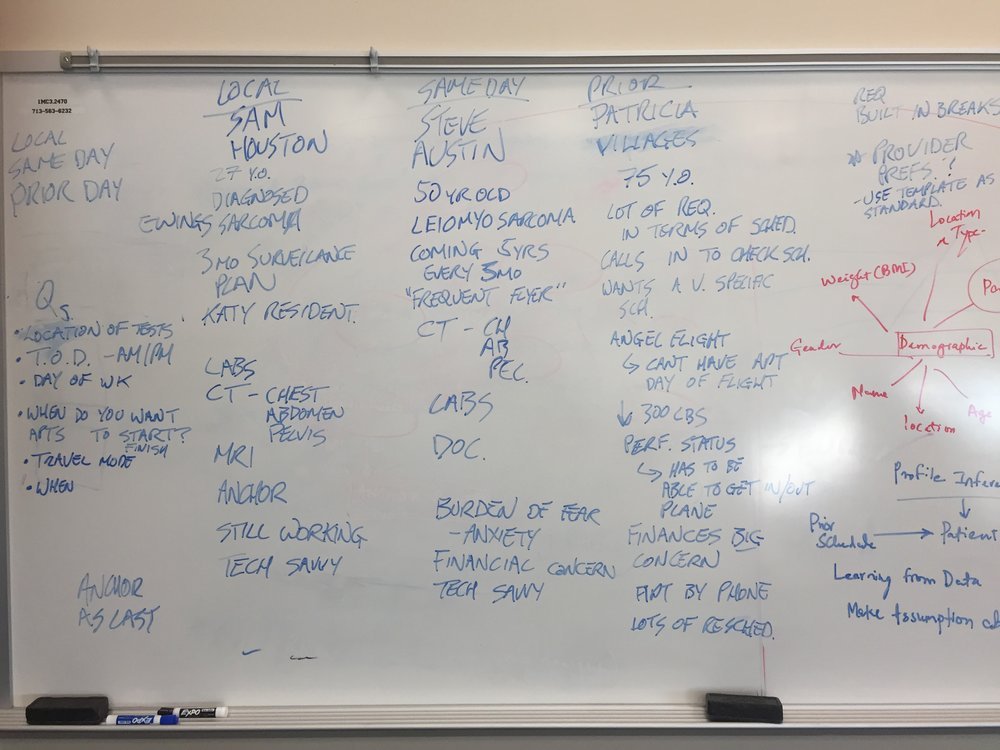 1MC3.2470
713-563-6232
LOCAL
SAME DAY
PRIOR DAY
Qs.
• LOCATION OF TESTS
• T.O.D. - AM/PM
• DAY OF WK
• WHEN DO YOU WANT
APTS TO START?
FINISH
• TRAVEL MODE
• WHEN
ANCHOR
AS LAST
LOCAL
SAM
HOUSTON
27 Y.O.
DIAGNOSED
EWINGS SARCOMA
3MO SURVEILANCE
PLAN
KATY RESIDENT.
LABS
CT - CHEST
ABDOMEN
PELVIS
MRI
ANCHOR
STILL WORKING
TECH SAVVY
SAMEDAY
STEVE
AUSTIN
50 YR OLD
LEIOMYOSARCOMA
COMING 5YRS
EVERY 3MO
"FREQUENT FLYER"
CT - CH
AB
PEC.
LABS
DOC.
BURDEN OF FEAR
- ANXIETY
FINANCIAL CONCERN
TECH SAVVY
PRIOR
PATRICIA
VILLAGES
75 Y.O.
LOT OF REQ.
IN TERMS OF SCHED.
CALLS IN TO CHECK SCH.
WANTS A V. SPECIFIC
SCH.
ANGEL FLIGHT
↳ CANT HAVE APT
DAY OF FLIGHT
↓ 300 LBS
PERF. STATUS
↳ HAS TO BE
ABLE TO GET IN/OUT
PLANE
FINANCES BIG
CONCERN
APT BY PHONE
LOTS OF RESCHED.
REQ
BUILT IN BREAKS
* PROVIDER
PREFS.
- USE TEMPLATE AS
STANDARD.
Location
Type.
Weight (BMI)
Gender
Demographic
Name
location
Age
Profile Infere
Prior
Schedule → Patient
Learning from Data
Make Assumption
EXPO
EXPO